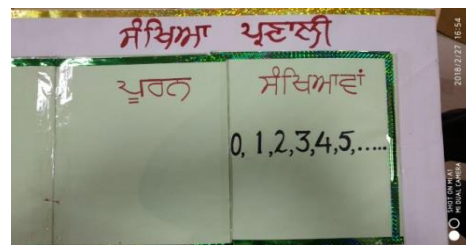 ਸੰਖਿਆ ਪ੍ਰਣਾਲੀ
ਪੂਰਨ ਸੰਖਿਆਵਾਂ
0, 1,2,3,4,5,.....
2018/2/27 16:54
SHOT ON MI A1
MI DUAL CAMERA